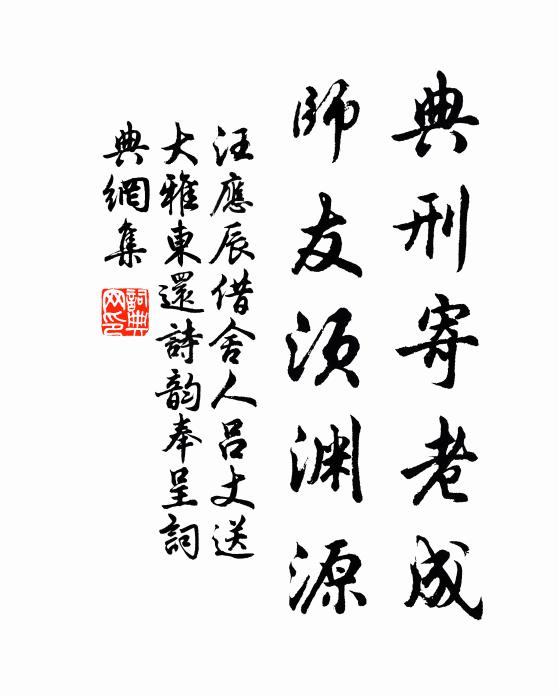 典刑寄老成
師友須渊源
汪應辰借舍人呂丈送
大雅東還詩韵奉呈詞
典網集
詞典網印